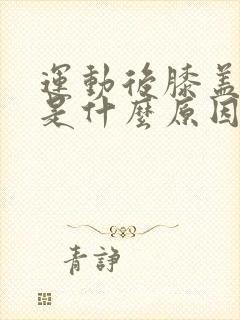 運動後膝蓋
是什麼原因
青諍